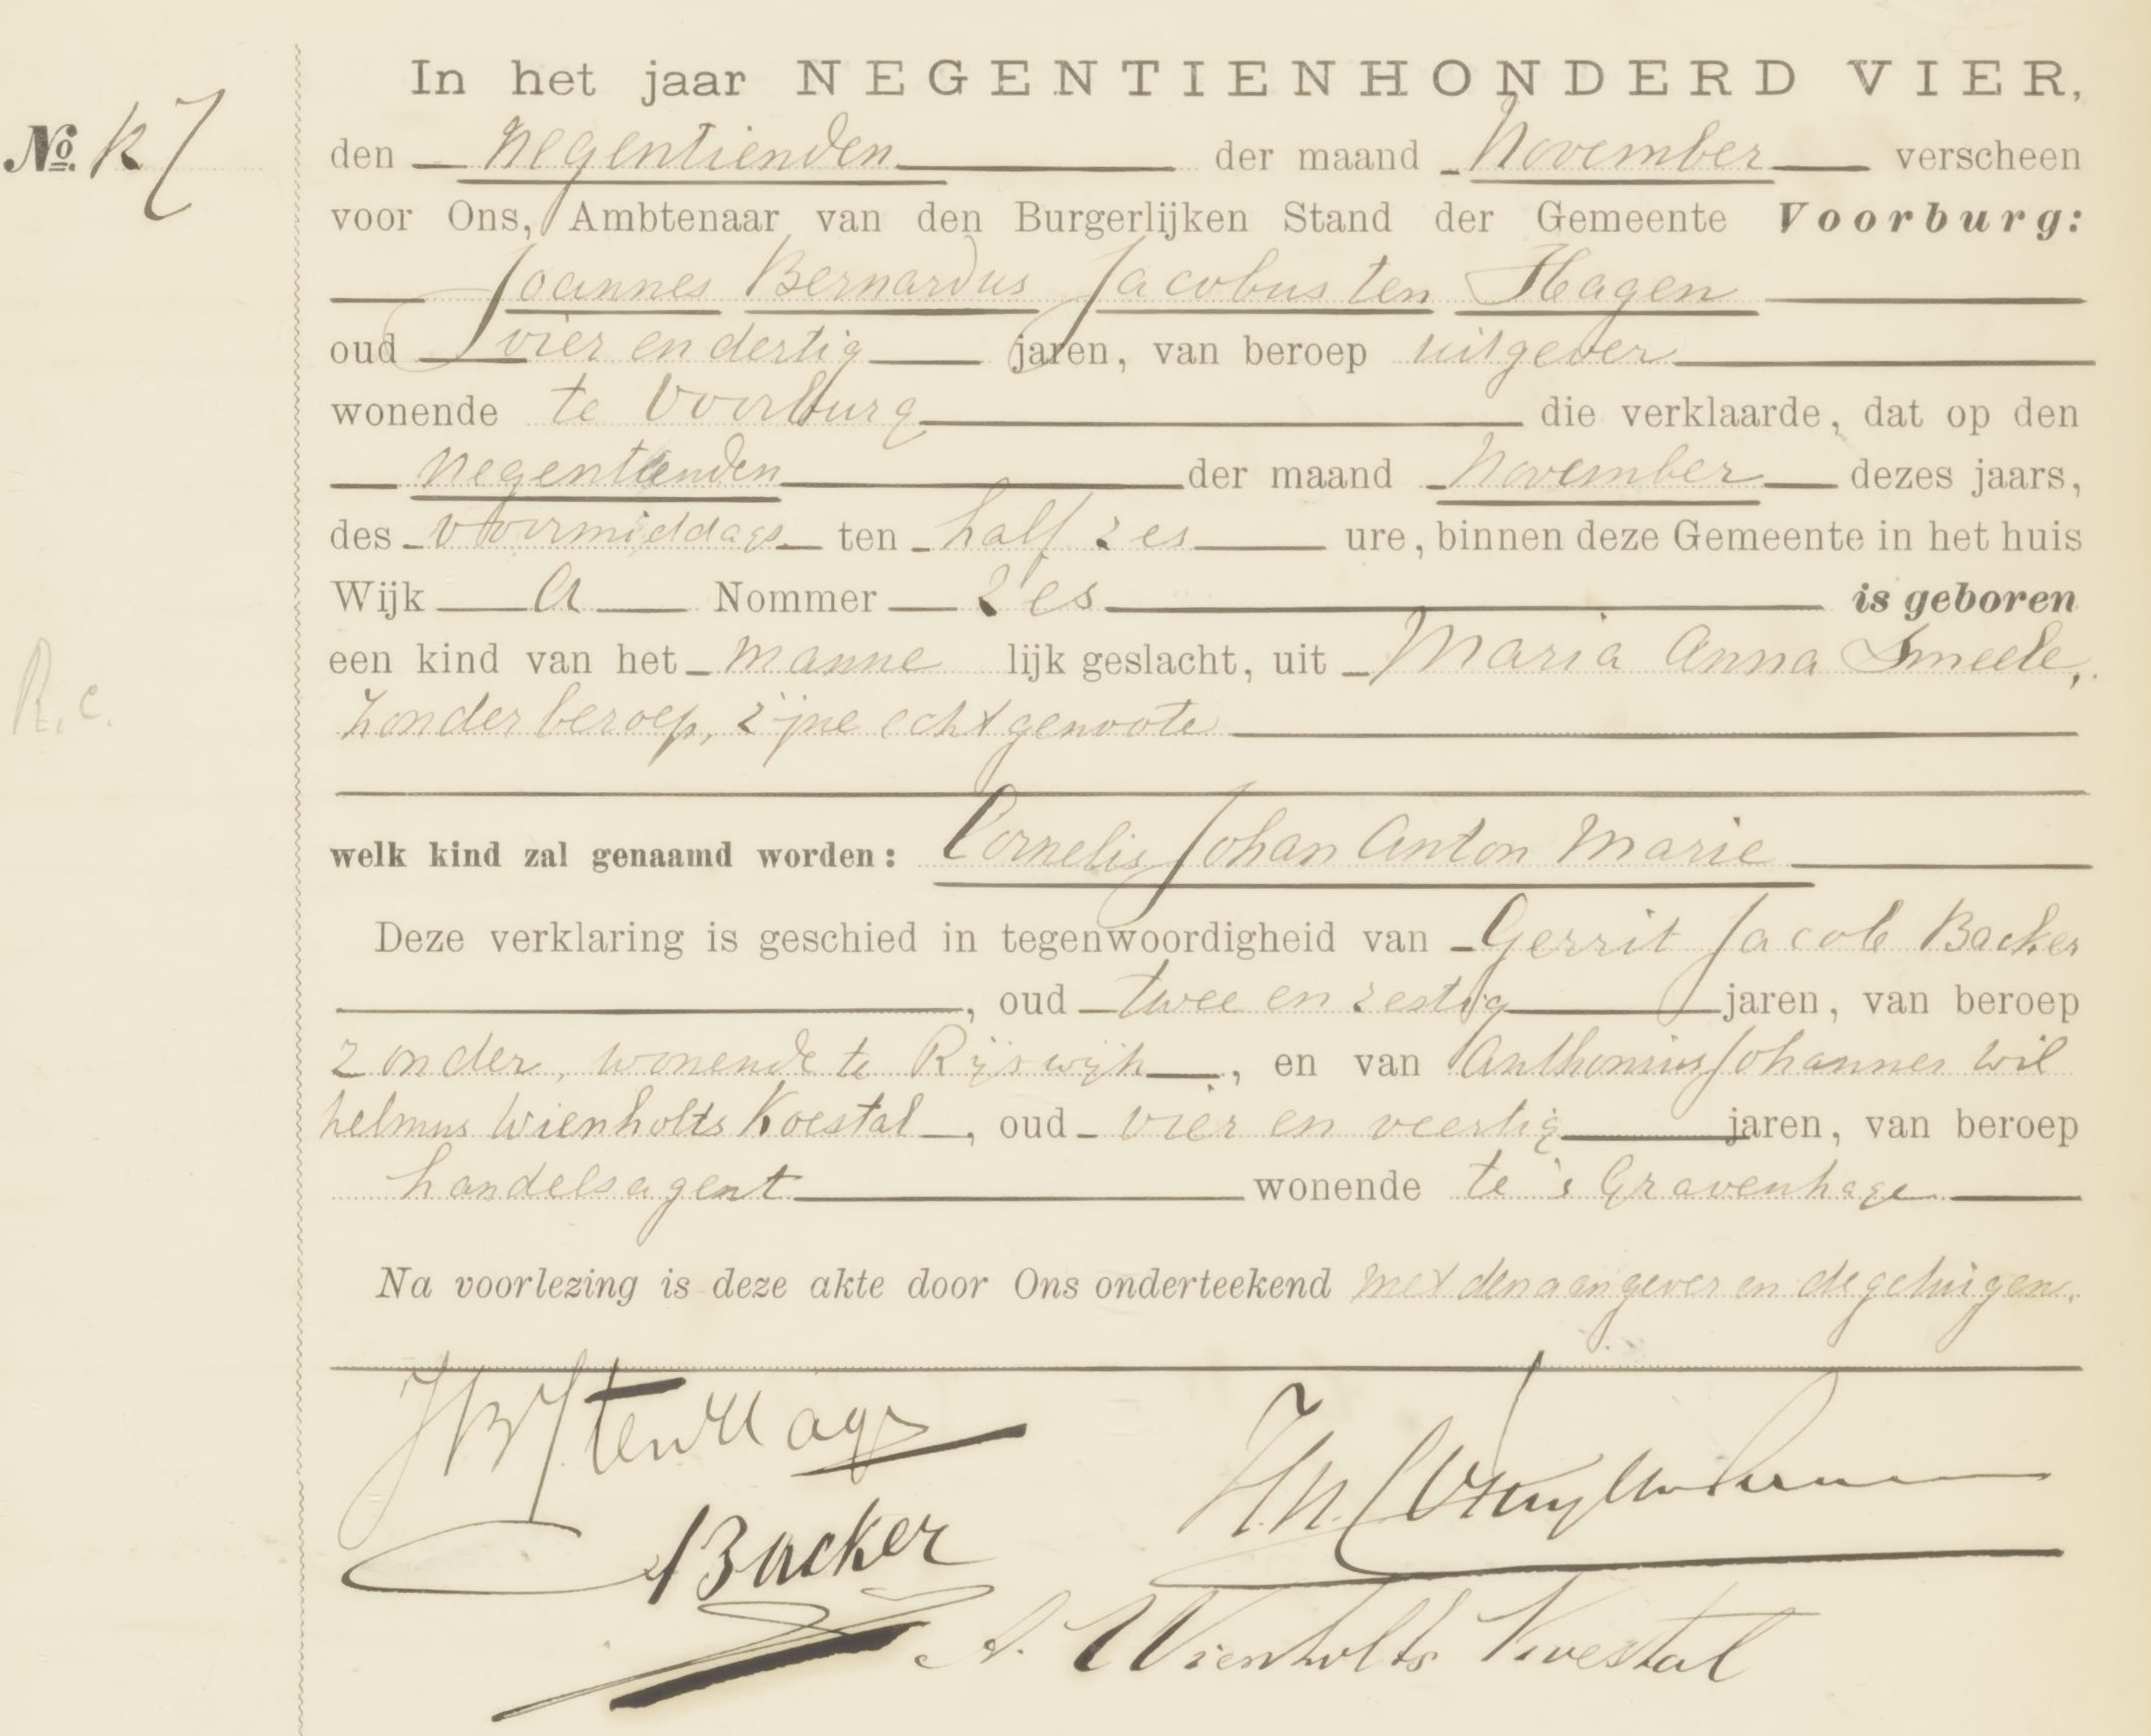 In het jaar NEGENTIENHONDERD VIER,
No.
den negentienden der maand November verscheen
voor Ons, Ambtenaar van den Burgerlijken Stand der Gemeente Voorburg:
Joannes Bernardus Jacobus ten Hagen
oud vier en dertig jaren, van beroep uitgever
wonende te Voorburg die verklaarde, dat op den
negentienden der maand November dezes jaars,
des voormiddags ten half zes ure, binnen deze Gemeente in het huis
Wijk A Nommer zes is geboren
een kind van het manne lijk geslacht, uit Maria Anna Smeele,
R.C.
zonder beroep, zijne echtgenoote
welk kind zal genaamd worden: Cornelis Johan Anton Marie
Deze verklaring is geschied in tegenwoordigheid van Gerrit Jacob Backer
, oud twee en zestig jaren, van beroep
zonder, wonende te Rijswijk, en van Anthonius Johannes Wil
helmus Wienholts Koestal, oud vier en veertig jaren, van beroep
handelsagent wonende te 's Gravenhage
Na voorlezing is deze akte door Ons onderteekend met den aangever en de getuigen.
JBJ ten Hagen
Backer
A. Wienholts Koestal